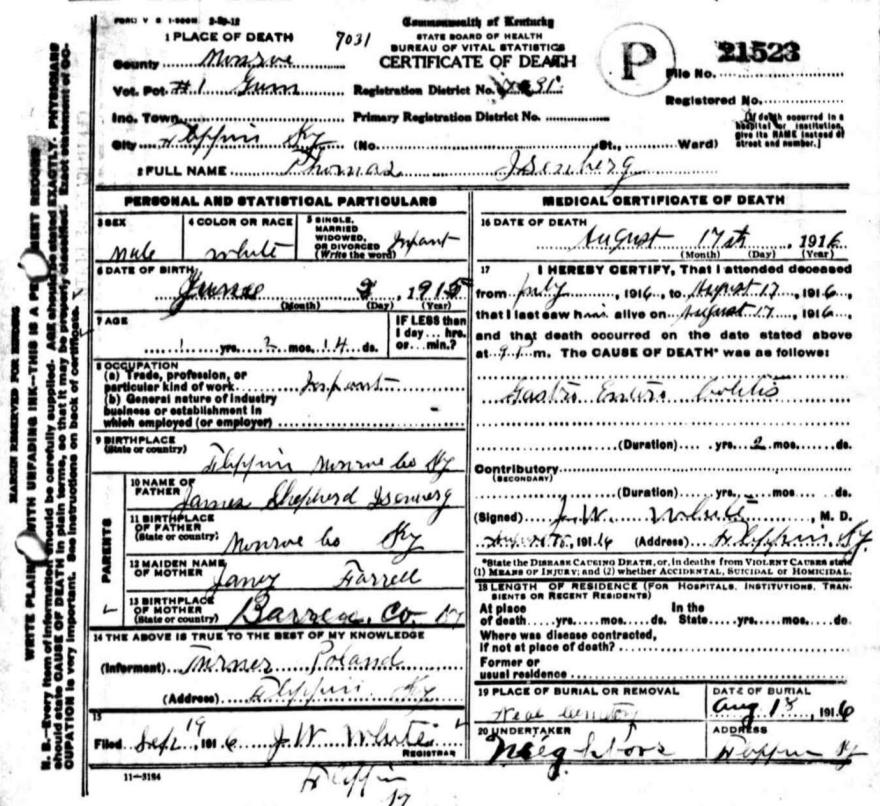 FORM V S 1-500M 2-29-12
Commonwealth of Kentucky
STATE BOARD OF HEALTH
BUREAU OF VITAL STATISTICS
CERTIFICATE OF DEATH
1 PLACE OF DEATH 7031
County Monroe
Vot. Pct. #1 Gum
Inc. Town
City Flippin Ky (No. St., Ward)
Registration District No. 891
Primary Registration District No.
P
21523
File No.
Registered No.
[If death occurred in a
hospital or institution,
give its NAME instead of
street and number.]
2 FULL NAME Thomas Isenberg
PERSONAL AND STATISTICAL PARTICULARS
3 SEX
Male
4 COLOR OR RACE
White
5 SINGLE,
MARRIED
WIDOWED,
OR DIVORCED
(Write the word)
Infant
6 DATE OF BIRTH
June 3, 1915
(Month) (Day) (Year)
7 AGE
1 yrs. 2 mos. 14 ds.
IF LESS than
1 day ... hrs.
or ... min.?
8 OCCUPATION
(a) Trade, profession, or
particular kind of work Infant
(b) General nature of industry
business or establishment in
which employed (or employer)
9 BIRTHPLACE
(State or country)
Flippin Monroe Co Ky
PARENTS
10 NAME OF
FATHER
James Shepherd Isenberg
11 BIRTHPLACE
OF FATHER
(State or country)
Monroe Co Ky
12 MAIDEN NAME
OF MOTHER
Janey Farrell
13 BIRTHPLACE
OF MOTHER
(State or country)
Barren Co. Ky
14 THE ABOVE IS TRUE TO THE BEST OF MY KNOWLEDGE
(Informant) Turner Poland
(Address) Flippin Ky
15
Filed Sept 19, 1916 J. W. White
REGISTRAR
11-3184
Flippin
Ky
MEDICAL CERTIFICATE OF DEATH
16 DATE OF DEATH
August 17th, 1916
(Month) (Day) (Year)
17 I HEREBY CERTIFY, That I attended deceased
from July, 1916, to August 17, 1916,
that I last saw him alive on August 17, 1916,
and that death occurred on the date stated above
at 9 m. The CAUSE OF DEATH* was as follows:
Gastro Entero Colitis
(Duration) yrs. 2 mos. ds.
Contributory
(SECONDARY)
(Duration) yrs. mos. ds.
(Signed) J. W. White, M. D.
1916 (Address) Flippin Ky.
*State the DISEASE CAUSING DEATH, or, in deaths from VIOLENT CAUSES state
(1) MEANS OF INJURY; and (2) whether ACCIDENTAL, SUICIDAL or HOMICIDAL.
18 LENGTH OF RESIDENCE (FOR HOSPITALS, INSTITUTIONS, TRAN-
SIENTS OR RECENT RESIDENTS)
At place
of death yrs. mos. ds.
In the
State yrs. mos. ds.
Where was disease contracted,
if not at place of death?
Former or
usual residence
19 PLACE OF BURIAL OR REMOVAL
DATE OF BURIAL
Aug 18, 1916
20 UNDERTAKER
Neighbors
ADDRESS
Flippin Ky
MARGIN RESERVED FOR BINDING
WRITE PLAIN WITH UNFADING INK—THIS IS A PE ENT RECORD
N. B.—Every item of information should be carefully supplied. AGE should be stated EXACTLY. PHYSICIANS
should state CAUSE OF DEATH in plain terms, so that it may be properly classified. Exact statement of OC-
CUPATION is very important. See instructions on back of certificate.